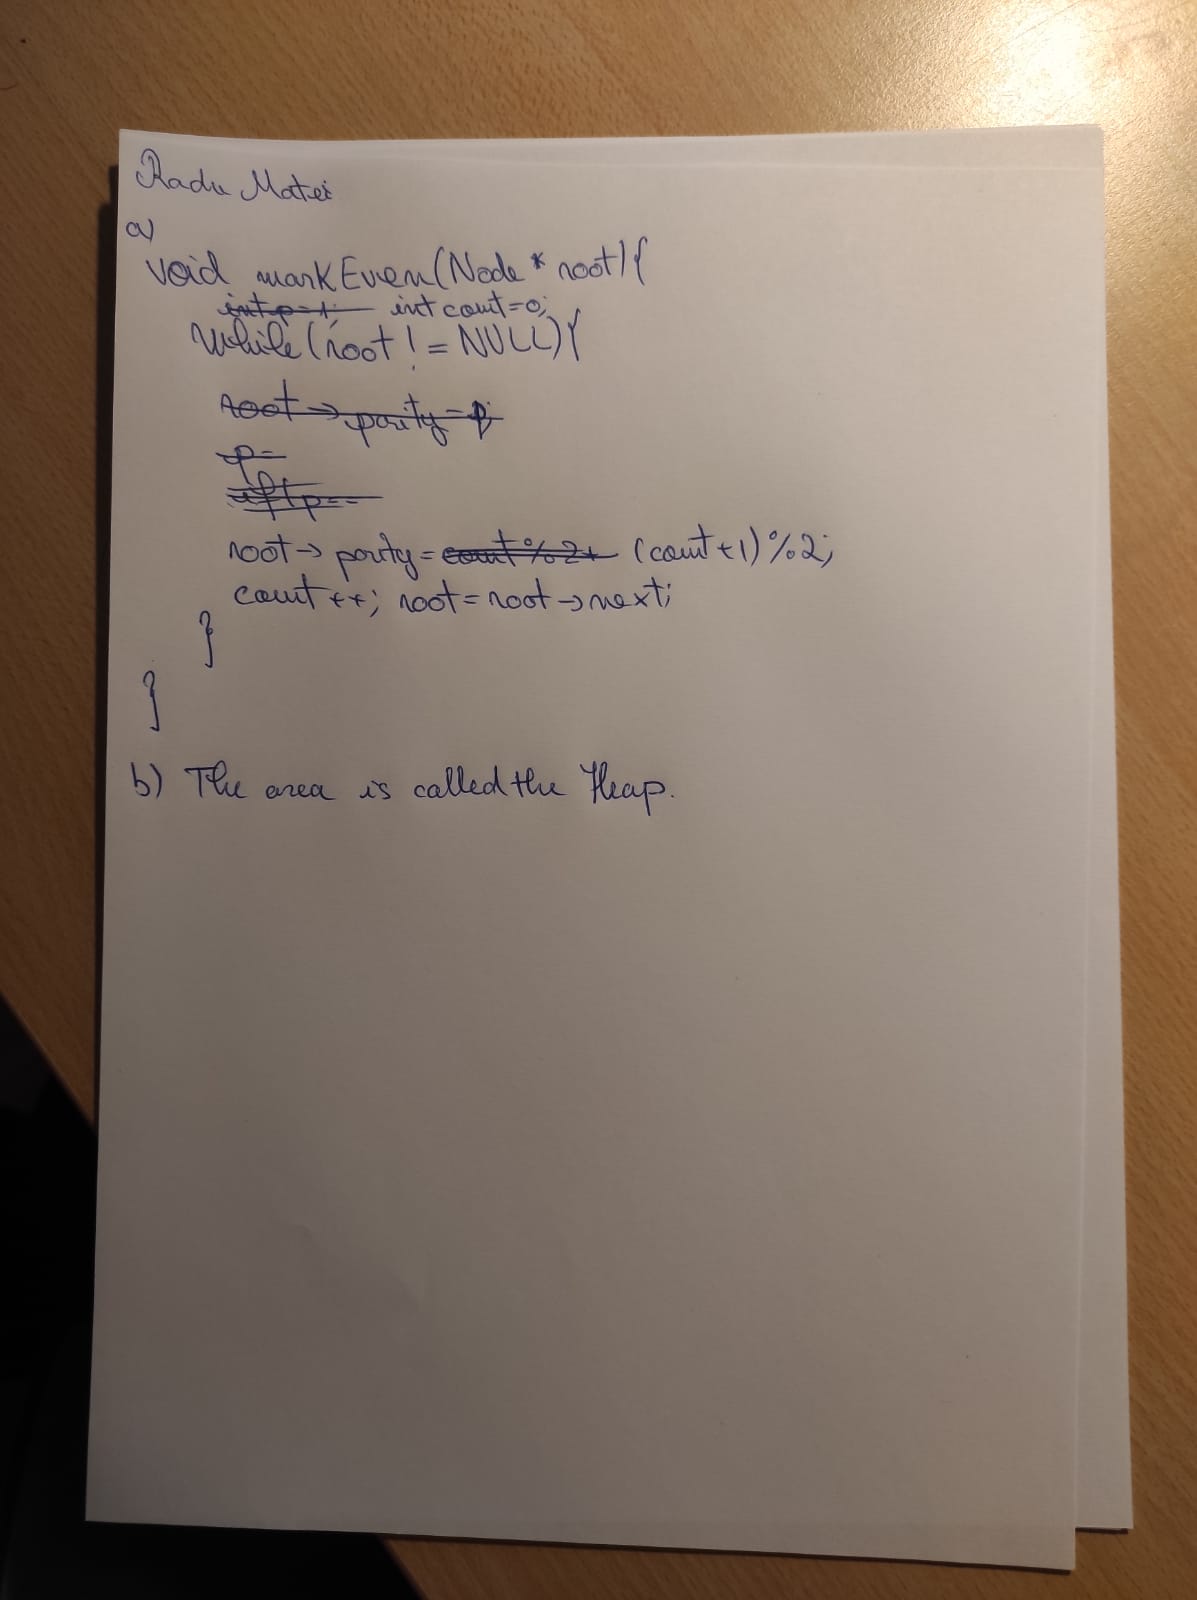 Radu Matei
a)
void markEven(Node * root){
int p=1; int count=0;
while(root != NULL){
root->parity=p;
p=
if(p==
root->parity=count%2+ (count+1)%2;
count++; root=root->next;
}
}
b) The area is called the Heap.